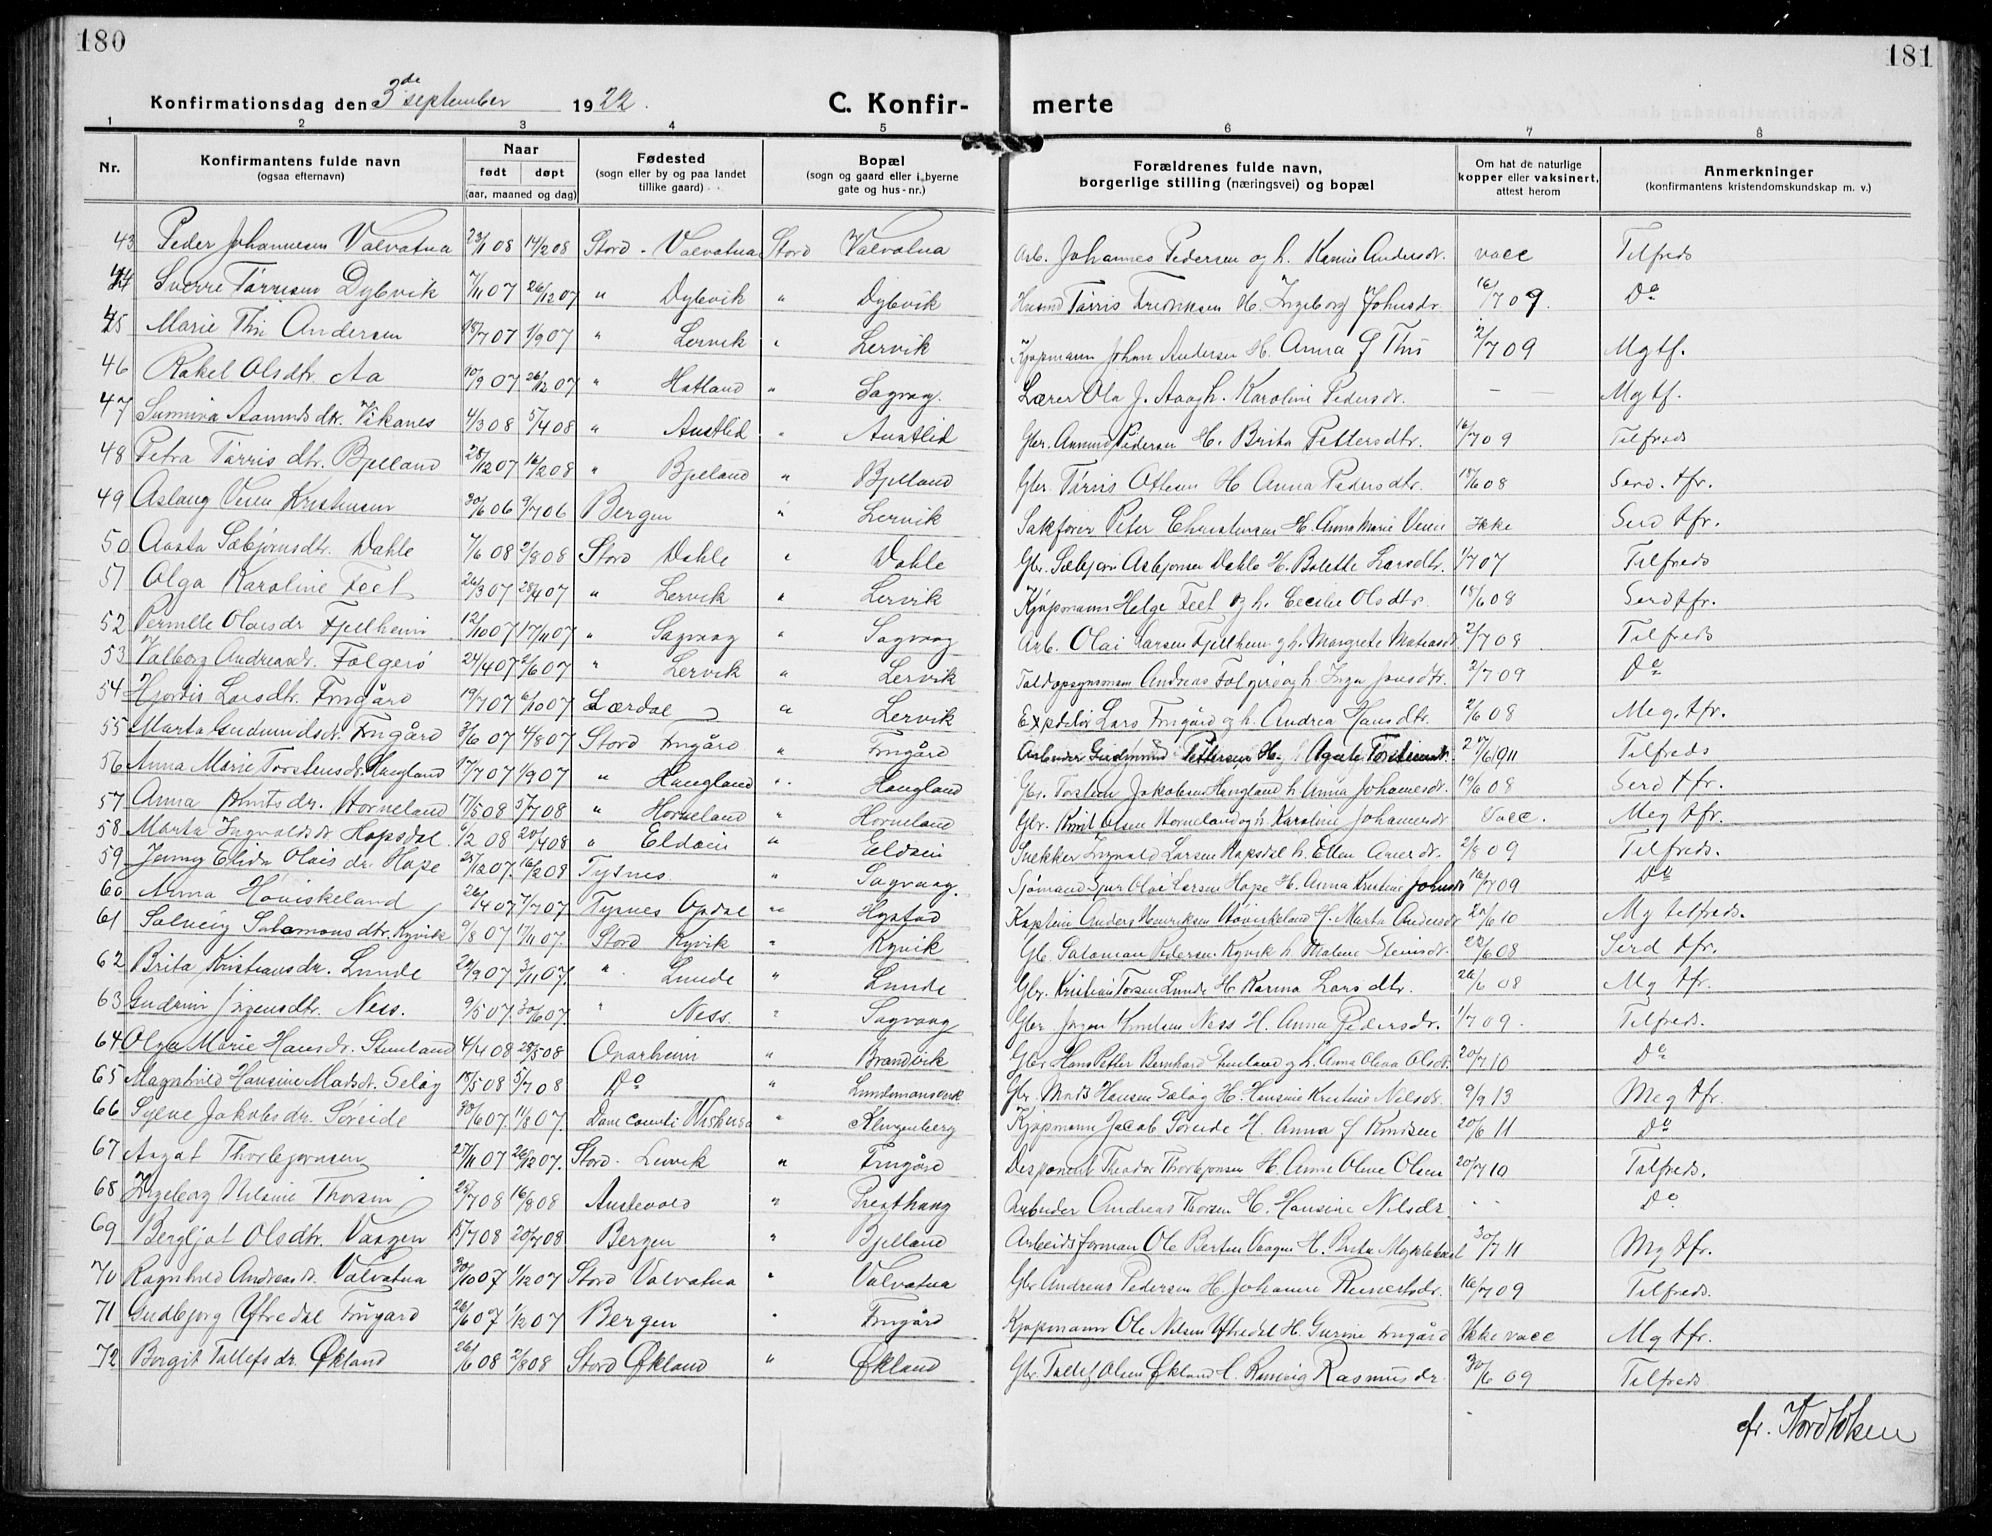 180
181
Konfirmationsdag den 3de september 1922.
C. Konfir-
merte
1 2 3 4 5 6 7 8
Nr.
Konfirmantens fulde navn
(ogsaa efternavn)
Naar
født døpt
(aar, maaned og dag)
Fødested
(sogn eller by og paa landet
tillike gaard)
Bopæl
(sogn og gaard eller i byerne
gate og hus-nr.)
Forældrenes fulde navn,
borgerlige stilling (næringsvei) og bopæl
Om hat de naturlige
kopper eller vaksinert,
attest herom
Anmerkninger
(konfirmantens kristendomskundskap m. v.)
43 Peder Johannesen Valvatna 23/1 08 14/2 08 Stord - Valvatna Stord Valvatna Arb. Johannes Pedersen og h. Andersdr. vacc Tilfreds
44 Sverre Tørrisen Dybvik 7/11 07 26/12 07 " Dybvik " Dybvik Tørris Fredriksen H. Ingeborg Johnsdr. 16/7 09. Do
45 Marie Thii Andersen 18/7 07 1/9 07 " Lervik " Lervik Kjøpmann Johan Andersen H. Anna f Thii 2/7 09 Mgtf.
46 Rakel Olsdtr. Aa 10/9 07 26/12 07 " Hatland " Sagvaag. Lærer Ola J. Aa og h. Karoline Pedersdr. — Mgtf.
47 Sunniva Aamundsdtr. Vikanes 4/3 08 5/4 08 " Austlid " Austlid Gbr. Aamund Pedersen H. Brita Pettersdtr. 16/7 09 Tilfreds
48 Petra Tørrisdtr. Bjelland 28/12 07 16/2 08 " Bjelland " Bjelland Gbr. Tørris Ottesen H Anna Pedersdtr. 18/6 08 Serd. tfr.
49 Aslaug Veien Kristensen 30/6 06 9/7 06 Bergen " Lervik Sakfører Peter Christensen H. Anna Marie Veien Ikke Serd tfr.
50 Aasta Sæbjørnsdtr. Dahle 7/6 08 2/8 08 Stord Dahle " Dahle Gbr. Sæbjørn Asbjørnsen Dahle H. Bolette Larsdtr. 1/7 07 Tilfreds
51 Olga Karoline Feet 26/3 07 28/4 07 " Lervik " Lervik Kjøpmann Helge Feet og h. Cecilie Olsdtr. 18/6 08 Serd tfr.
52 Pernille Olaisdr. Fjellheim 12/10 07 17/11 07 " Sagvaag " Sagvaag Arb. Olai Larsen Fjellheim og h. Margrete 2/7 08 Tilfreds
53 Valborg Andreasdr. Folgerø 24/4 07 2/6 07 " Lervik " Lervik Toldopsynsmann Andreas Folgerø og h. Inga Jonsdtr. 2/7 09 Do
54 Hjørdis Larsdtr. Frugård 19/7 07 6/10 07 Lærdal " Lervik Expeditør Lars Frugård og h. Andrea Hansdtr. 2/6 08 Meg. tfr.
55 Marta Gudmundsdr. Frugård 3/6 07 4/8 07 Stord Frugård " Frugård Arbeider Gudmund Pettersen H. Agate 27/6 1911 Tilfreds
56 Anna Marie Torstensdr. Haugland 17/7 07 1/9 07 " Haugland " Haugland Gbr. Torstein Jakobsen Haugland h. Anna Johannesdr. 19/6 08 Serd tfr.
57 Anna Knutsdr. Horneland 17/5 08 5/7 08 " Horneland " Horneland Gbr. Knut Olsen Horneland og h Karoline Johannesdr Vacc. Meg tfr.
58 Marta Ingvaldsdr Hopsdal 6/2 08 20/4 08 " Eldøien " Eldøien Snekker Ingvald Larsen Hopsdal h. Ellen 2/8 09 Tilfreds.
59 Jenny Elida Olaisdr. Hope 25/12 07. 16/2 08 Tysnes " Sagvaag. Sjømand Olai Larsen Hope H. Anna Kristine Johnsdr 16/7 09 Do
60 Anna Høviskeland 26/4 07 7/7 07 Tysnes Opdal " Hystad Kaptein Anders Henriksen Høviskeland H. Marta Andersdr 20/6 10 Mg tilfreds.
61 Solveig Salomonsdtr. Kyvik 9/8 07 17/11 07. Stord Kyvik " Kyvik Gb. Salomon Pedersen Kyvik h Malene 22/6 08 Serd tfr.
62 Brita Kristiansdr. Lunde 20/9 07 3/11 07. " Lunde " Lunde Gbr. Kristian Torsen Lunde H Karina Larsdtr. 26/6 08 Mg tfr.
63 Gudrun Jørgensdtr. Ness. 9/5 07. 30/6 07. " Ness. " Sagvaag Gbr Jørgen Knutsen Ness H. Anna Pedersdr. 1/7 09. Tilfreds.
64 Olga Marie Hansdr. Stunland 4/4 08 28/5 08 Onarheim " Brandvik Gbr Hans Petter Bernhard Stunland og h. Anna Olava Olsdr. 20/7 10 Do
65 Magnhild Hansine Madsdr. Seløy 18/5 08 5/7 08 Do " Gbr. Mads Hansen Seløy H. Hansine Kristine Nilsdr. 9/9 13 Meg tfr.
66 Sylva Jakobsdr. Søreide 30/6 07. 11/8 07. Dane " Klingenberg Kjøpmann Jacob Søreide H. Anna f Knudsen 20/6 11 Do
67 Aagot Thorbjørnsen 27/11 07 26/12 07. Stord. Lervik " Frugård Disponent Theodor Thorbjørnsen H. Anne Oline Olsen 20/7 10 Tilfreds.
68 Ingeborg Nilsine Thorsen 25/7 08 16/8 08 Austevold " Presthaug Arbeider Andreas Thorsen H. Hansine Nilsdr. - - Do
69 Bergljot Olsdtr. Vaagen 15/7 08 20/7 08 Bergen " Bjelland Arbeidsforman Ole Berten Vaagen H. Brita Myklebust 30/7 11 Mg tfr.
70 Ragnhild Andreasdr. Valvatna 30/10 07 1/12 07 Stord Valvatna " Valvatna Gbr Andreas Pedersen H. Johanne 16/7 09 Tilfreds.
71 Gudbjørg Yttredal Frugård 26/6 07 1/12 07 Bergen " Frugård Kjøpmann Ole Nilsen Yttredal H. Gurine Frugård Ikke vacc Mg tfr.
72 Borgit Tollefsdr. Økland 26/6 08 2/8 08 Stord Økland " Økland Gbr. Tollef Olsen Økland H. Rasmusdr 30/6 09 Tilfreds